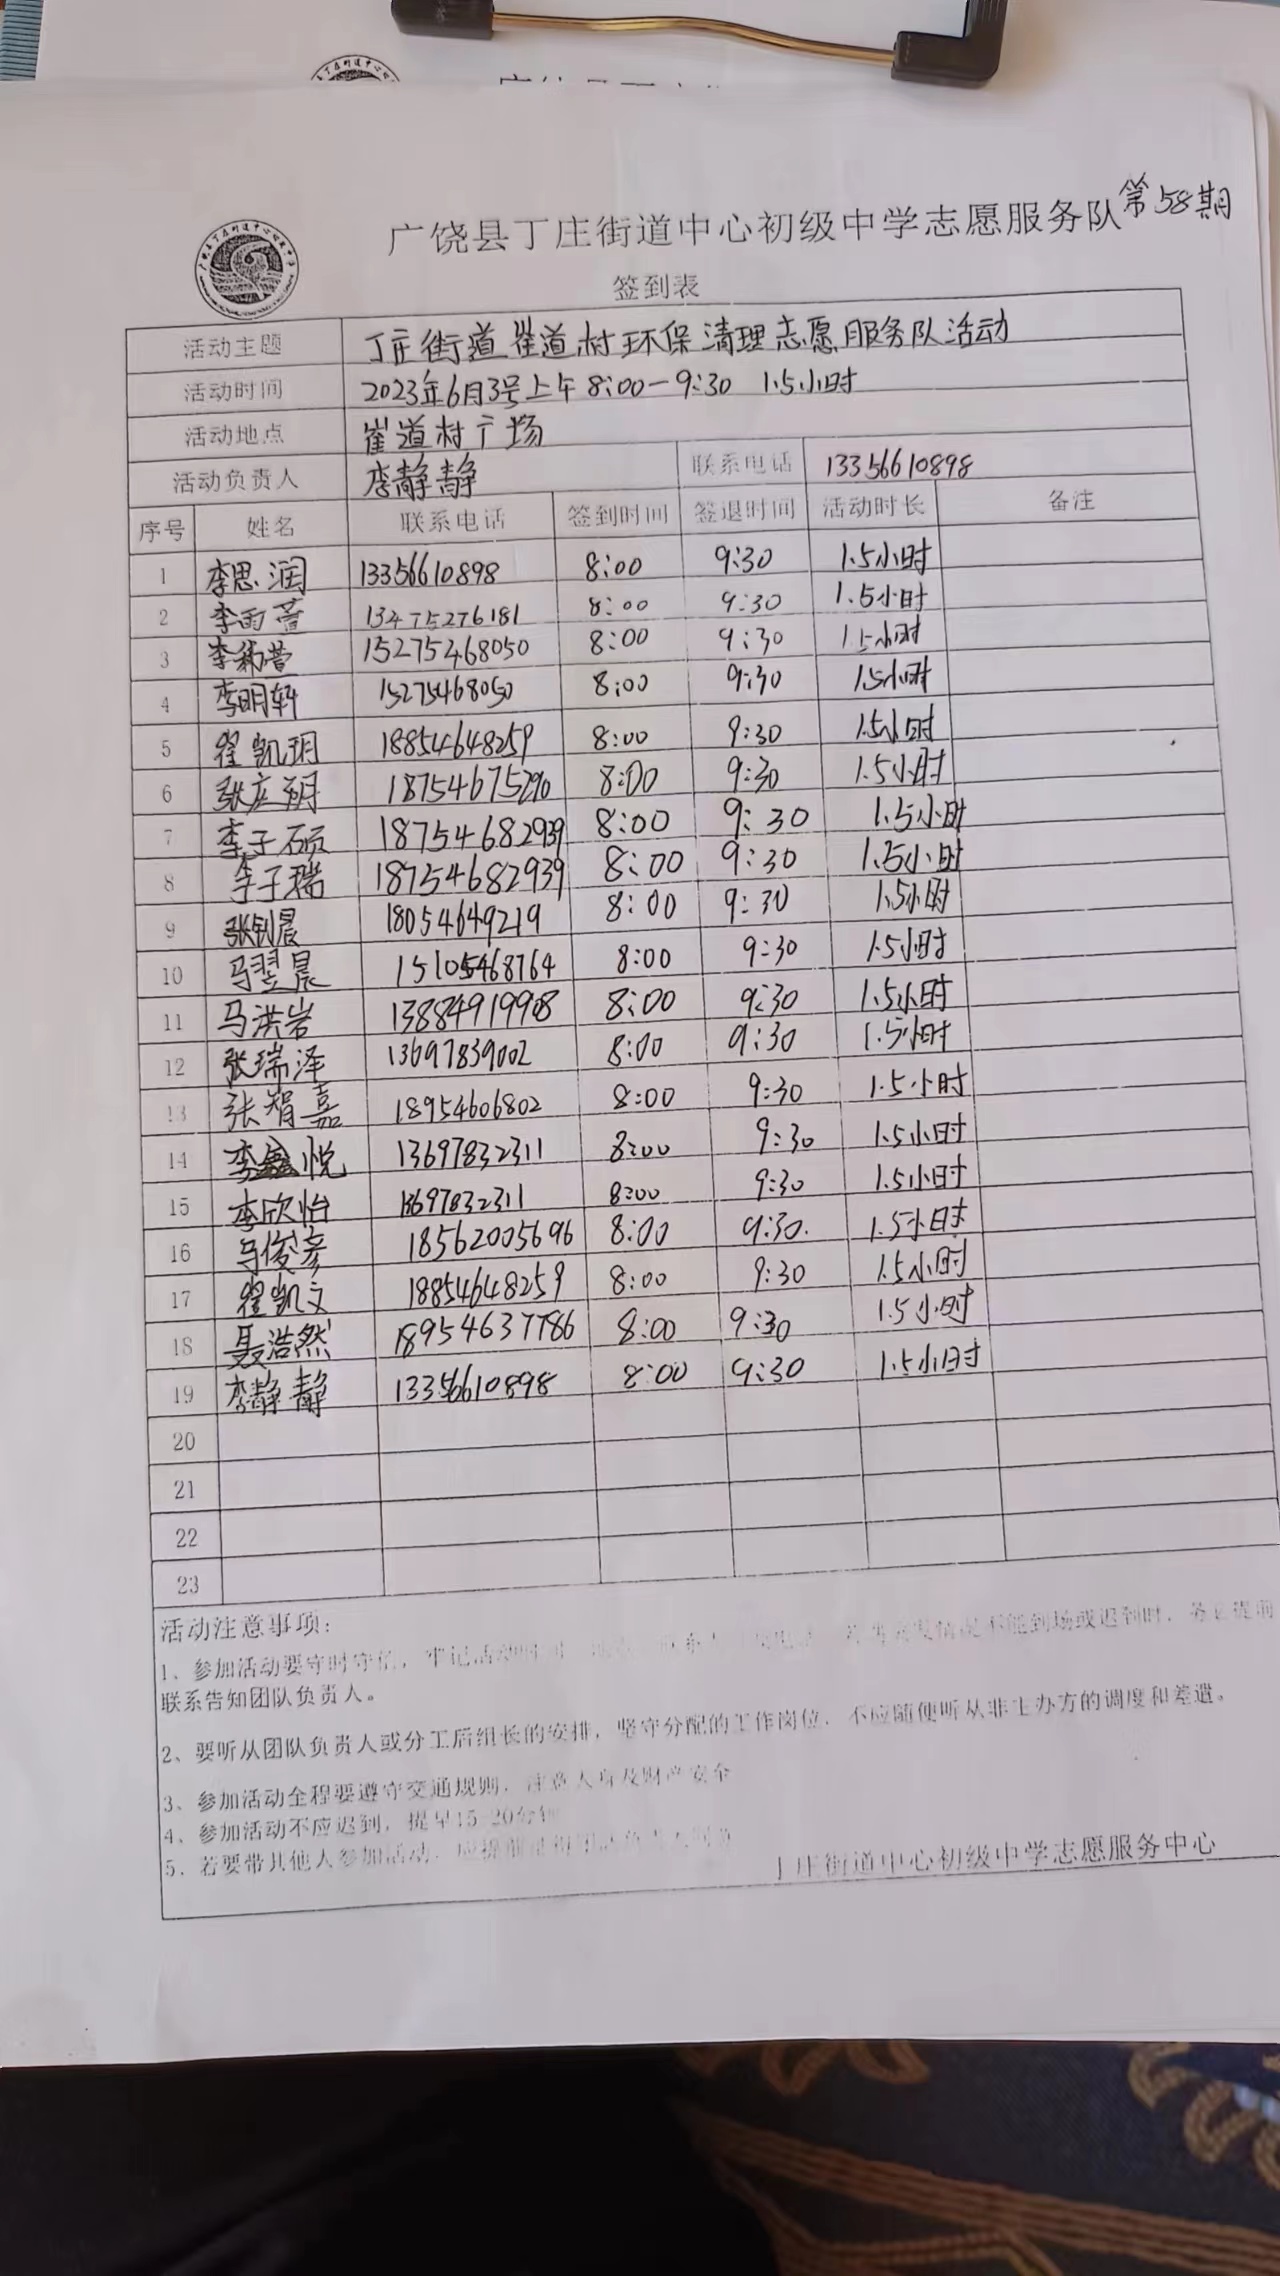 广饶县丁庄街道中心初级中学志愿服务队 第58期
签到表
活动主题 丁庄街道崔道村环保清理志愿服务队活动
活动时间 2023年6月3号上午8:00-9:30 1.5小时
活动地点 崔道村广场
活动负责人 李静静 联系电话 13356610898
序号 姓名 联系电话 签到时间 签退时间 活动时长 备注
1 李思润 13356610898 8:00 9:30 1.5小时
2 李雨萱 13475276181 8:00 9:30 1.5小时
3 李 萱 15275468050 8:00 9:30 1.5小时
4 李明轩 15275468050 8:00 9:30 1.5小时
5 翟凯玥 18854648259 8:00 9:30 1.5小时
6 张 18754675290 8:00 9:30 1.5小时
7 李子硕 18754682939 8:00 9:30 1.5小时
8 李子瑞 18754682939 8:00 9:30 1.5小时
9 张钊晨 18054649219 8:00 9:30 1.5小时
10 马翌晨 15105468764 8:00 9:30 1.5小时
11 马洪岩 13884919908 8:00 9:30 1.5小时
12 张瑞泽 13697839002 8:00 9:30 1.5小时
13 张智嘉 18954606802 8:00 9:30 1.5小时
14 李鑫悦 13697832311 8:00 9:30 1.5小时
15 李欣怡 13697832311 8:00 9:30 1.5小时
16 马俊彦 18562005696 8:00 9:30. 1.5小时
17 翟凯文 18854648259 8:00 9:30 1.5小时
18 聂浩然 18954637786 8:00 9:30 1.5小时
19 李静静 13356610898 8:00 9:30 1.5小时
20
21
22
23
活动注意事项:
1、参加活动要守时守信, 牢记活动时间 不能到场或迟到时, 提前
联系告知团队负责人。
2、要听从团队负责人或分工后组长的安排, 坚守分配的工作岗位, 不应随便听从非主办方的调度和差遣。
3、参加活动全程要遵守交通规则, 注意人身及财产安全
4、参加活动不应迟到, 提早15-20分钟
5、若要带其他人参加活动, 应提前
丁庄街道中心初级中学志愿服务中心